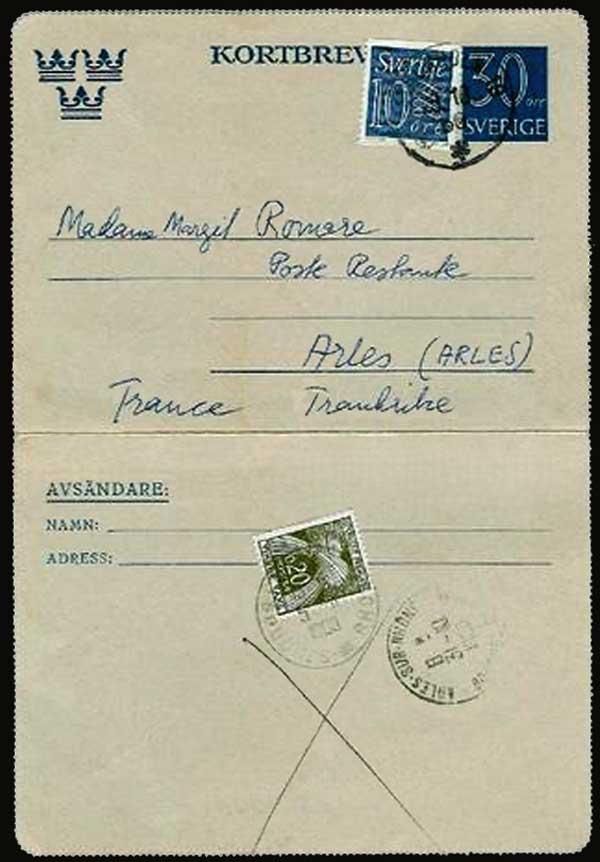 KORTBREV
Sverige
10
öre
30
öre
SVERIGE
Madame Margit Romare
Poste Restante
Arles (ARLES)
France Frankrike
AVSÄNDARE:
NAMN:
ADRESS:
0,20
ARLES-SUR-RHÔNE